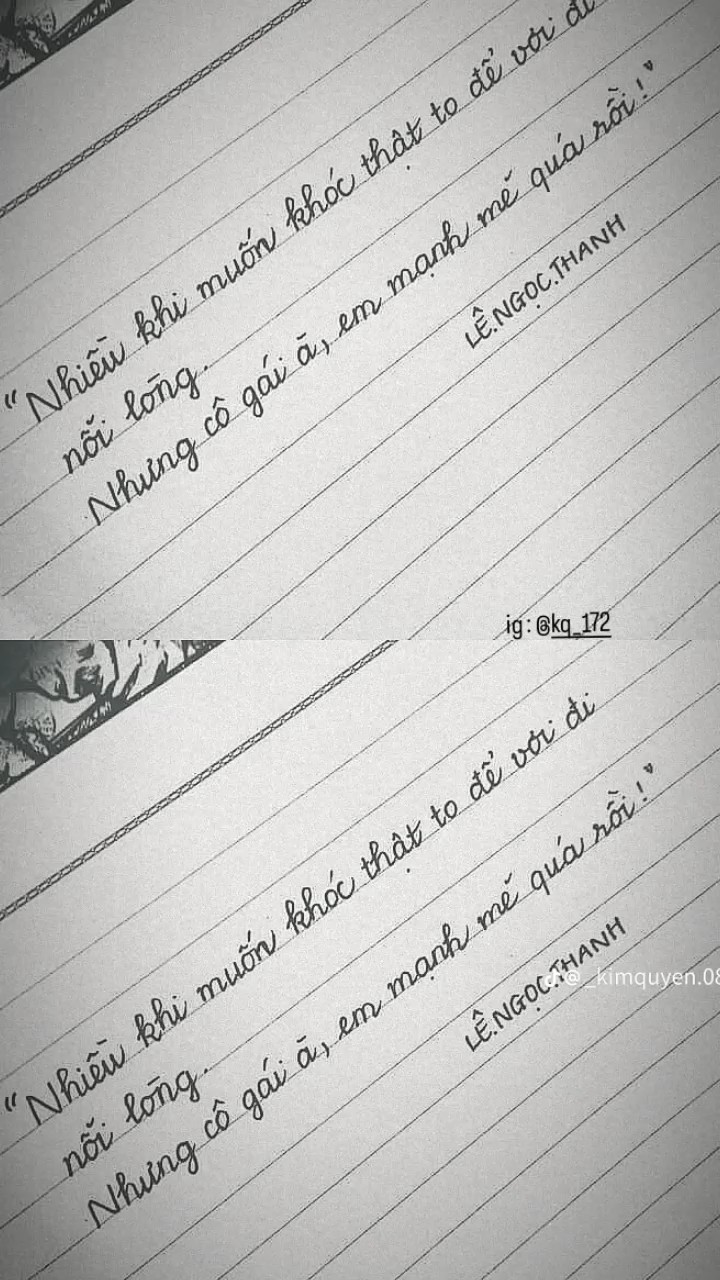 “Nhiều khi muốn khóc thật to để vơi đi
nỗi lòng.
Nhưng cô gái à, em mạnh mẽ quá rồi!”
LÊ.NGỌC.THANH
ig: @kq_172
“Nhiều khi muốn khóc thật to để vơi đi
nỗi lòng.
Nhưng cô gái à, em mạnh mẽ quá rồi!”
LÊ.NGỌC.THANH
@_kimquyen.08